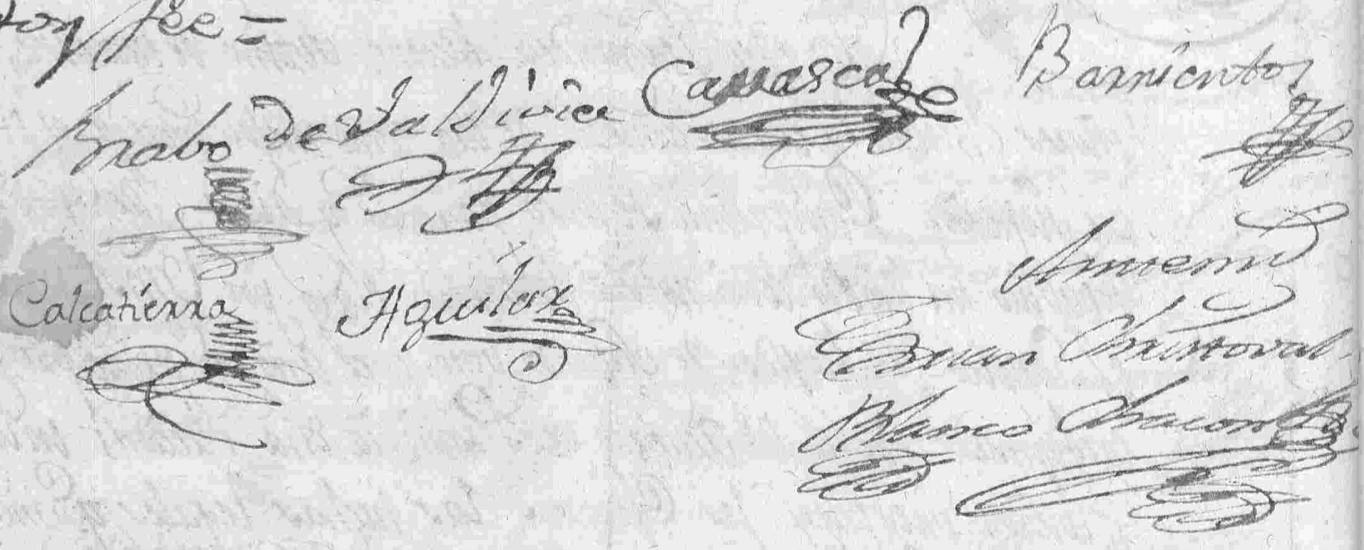 doy fee =
Brabo De Valdivia Carrascal Barrientos
Calcatierra Aguilar
Ante mi
Juan Christoval
Blanco Chacon